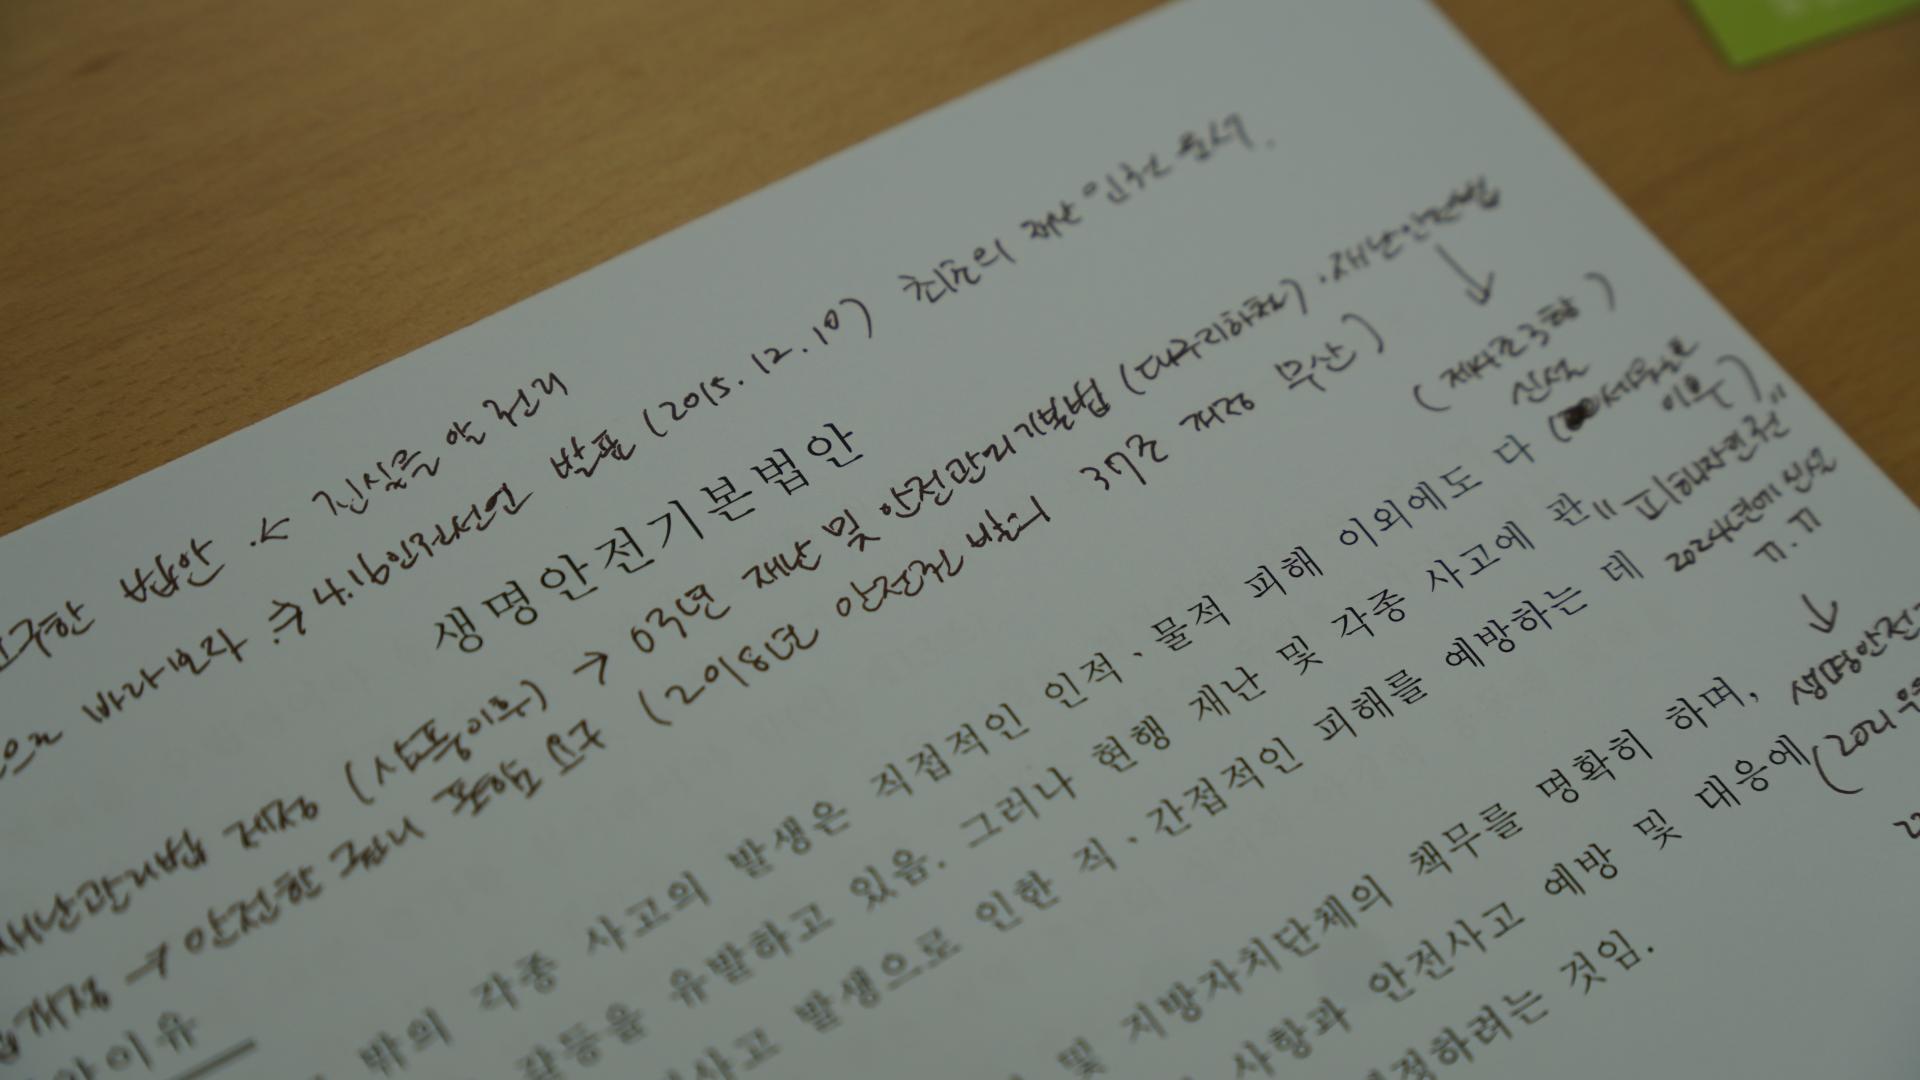 요구한 법안 < 진실을 알 권리
으로 바라보자 → 4.16인권선언 발표 (2015. 12. 10) 최초의 재난 인권 문서.
생명안전기본법안
재난관리법 제정 (삼풍이후) → 03년 재난 및 안전관리기본법 (대구지하철) · 재난안전법
개정 → 안전할 권리 포함 요구 (2018년 안전권 발의 37조 개정 무산)
(제4조 3항 신설)
(세월호 이후)
"피해자권권"
2024년에 신설
ㄲ.ㄲ
생명안전
(2021
이유
밖의 각종 사고의 발생은 직접적인 인적、물적 피해 이외에도 다
갈등을 유발하고 있음. 그러나 현행 재난 및 각종 사고에 관
사고 발생으로 인한 직、간접적인 피해를 예방하는 데
및 지방자치단체의 책무를 명확히 하며,
사항과 안전사고 예방 및 대응에
정하려는 것임.